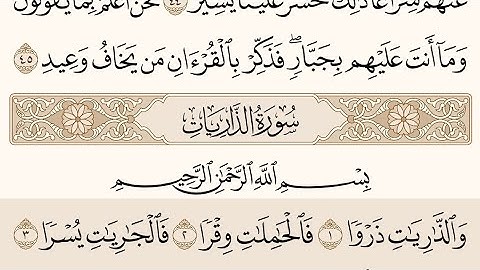 عَنْهُمْ سِرَاعًا ذَٰلِكَ حَشْرٌ عَلَيْنَا يَسِيرٌ ٤٤ نَحْنُ أَعْلَمُ بِمَا يَقُولُونَ
وَمَآ أَنتَ عَلَيْهِم بِجَبَّارٍۖ فَذَكِّرْ بِٱلْقُرْءَانِ مَن يَخَافُ وَعِيدِ ٤٥
سُورَةُ الذَّارِيَاتِ
بِسْمِ ٱللَّهِ ٱلرَّحْمَٰنِ ٱلرَّحِيمِ
وَٱلذَّٰرِيَٰتِ ذَرْوًا ١ فَٱلْحَٰمِلَٰتِ وِقْرًا ٢ فَٱلْجَٰرِيَٰتِ يُسْرًا ٣